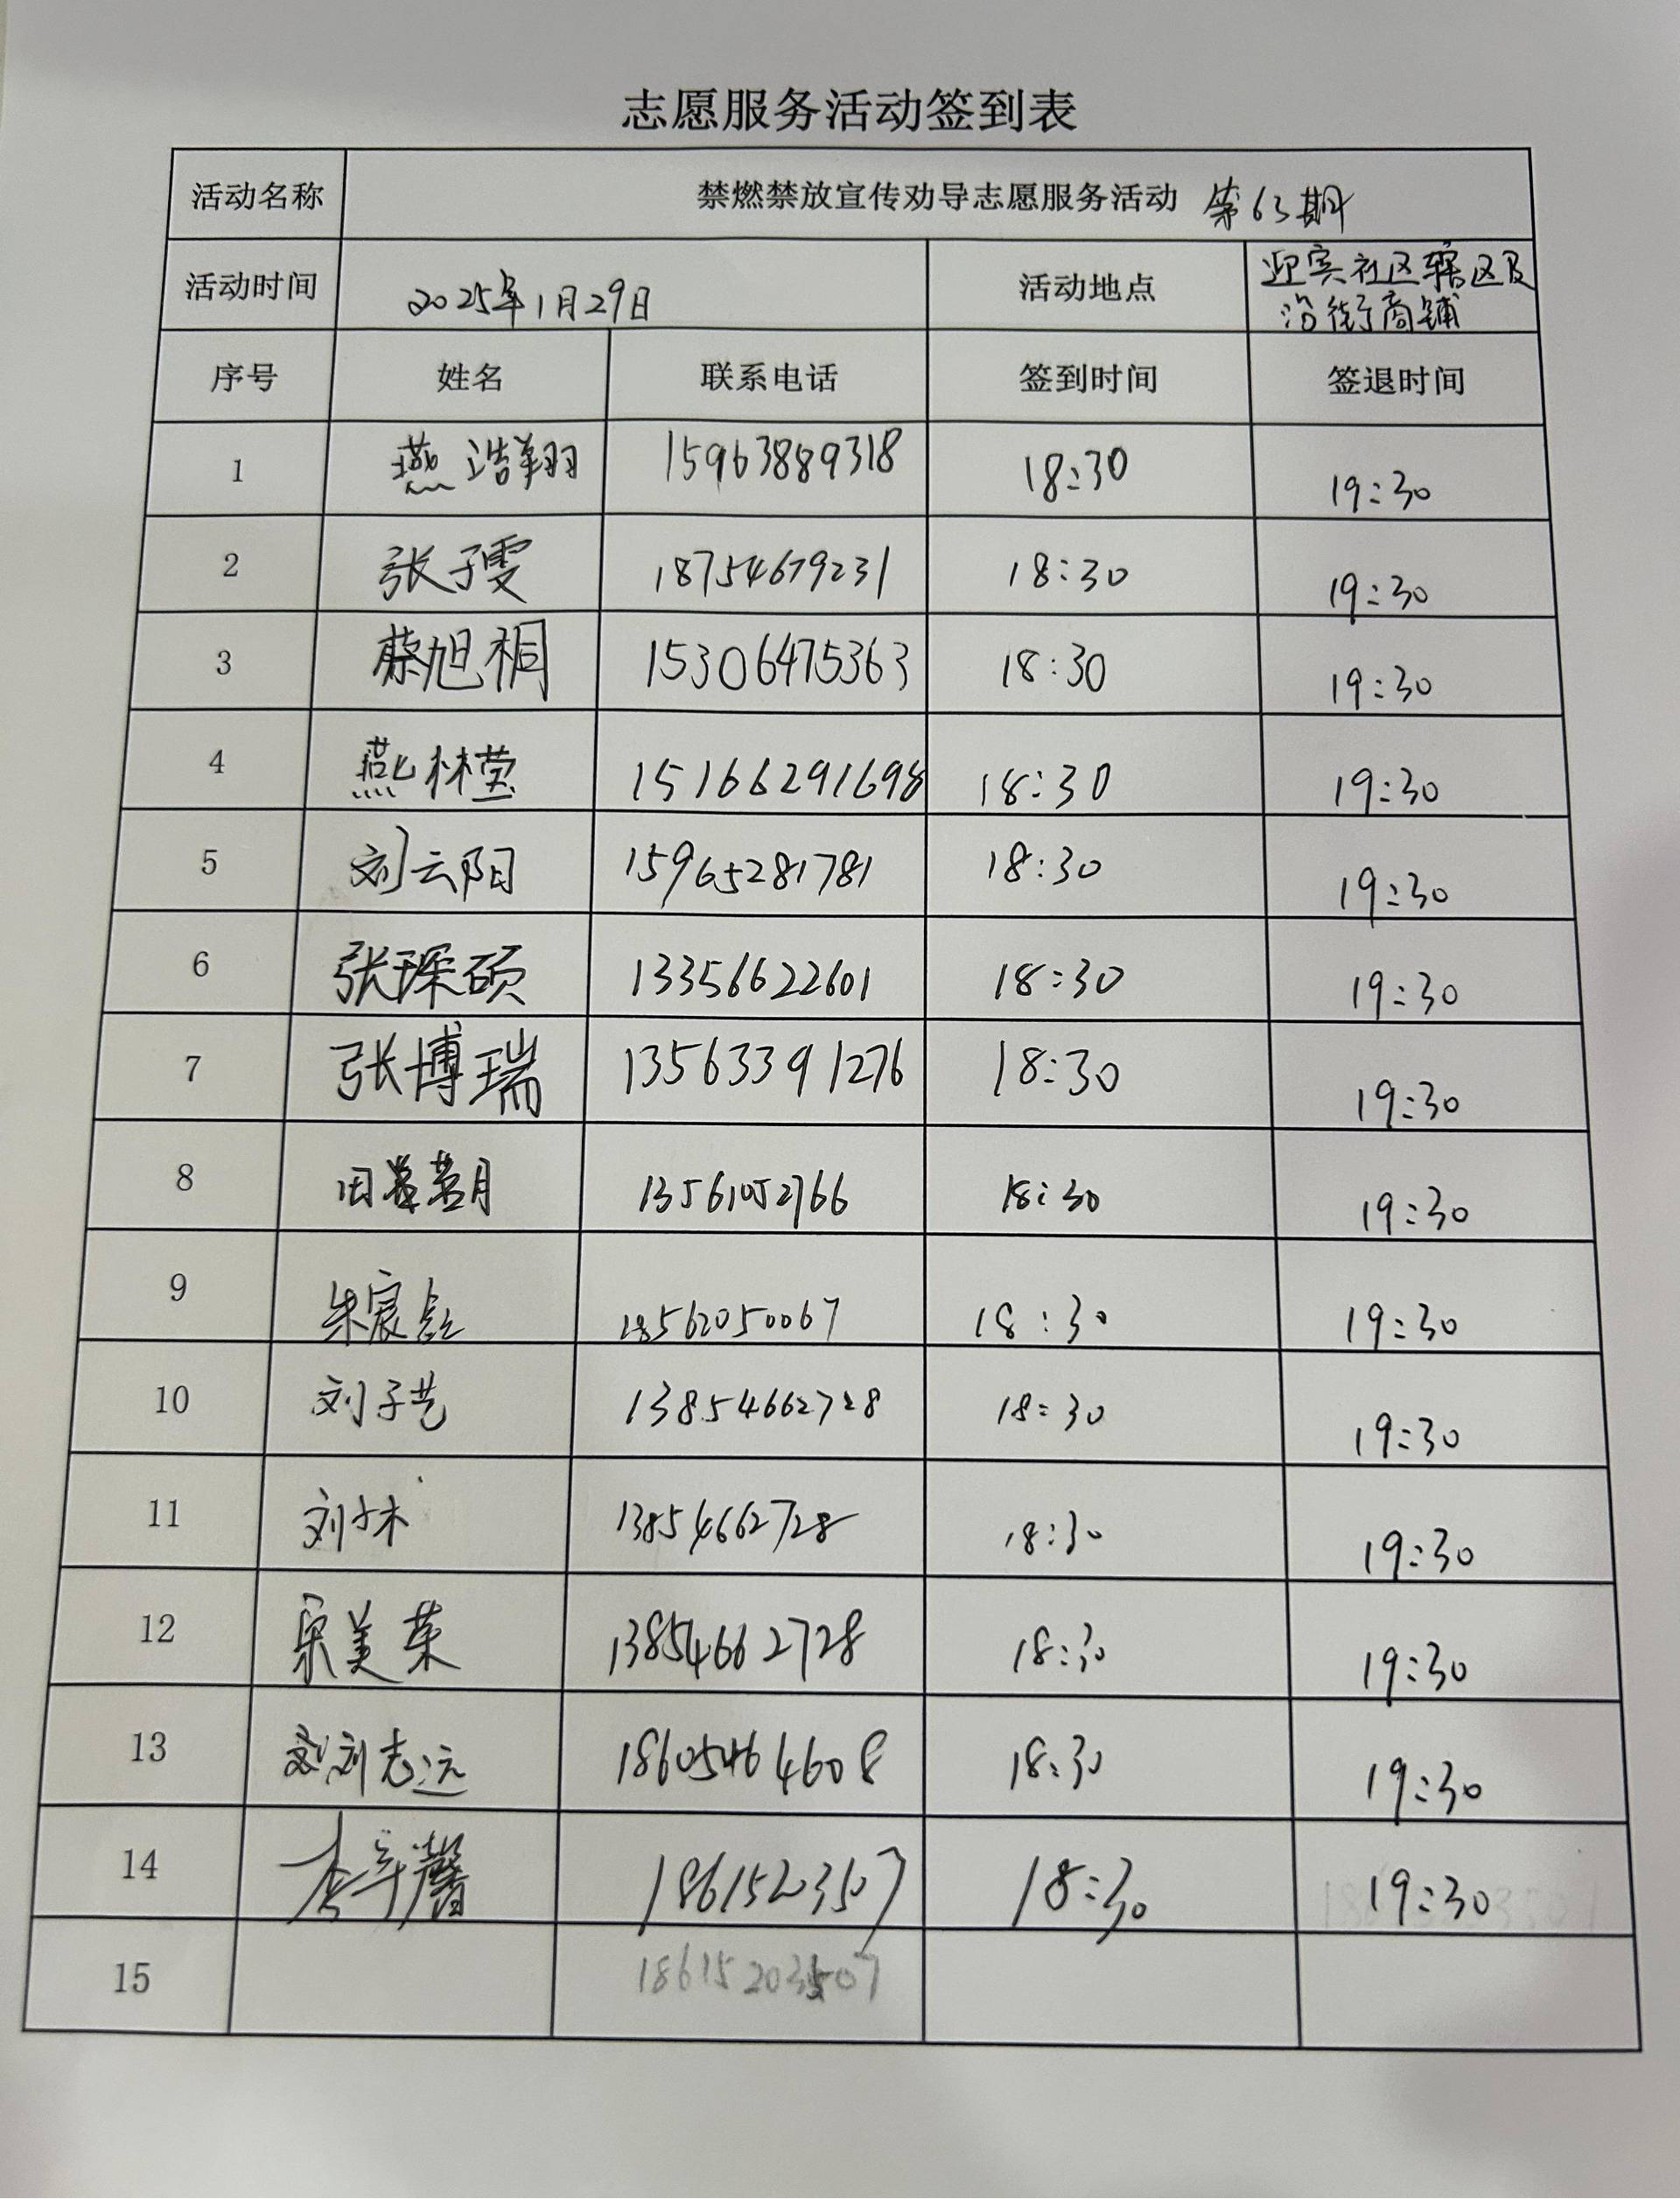 志愿服务活动签到表
活动名称 禁燃禁放宣传劝导志愿服务活动 第63期
活动时间 2025年1月29日 活动地点 迎宾社区辖区及
沿街商铺
序号 姓名 联系电话 签到时间 签退时间
1 燕浩翔 15963889318 18:30 19:30
2 张子雯 18754679231 18:30 19:30
3 蔡旭桐 15306475363 18:30 19:30
4 燕林莹 15166291698 18:30 19:30
5 刘云阳 15965281781 18:30 19:30
6 张琛硕 13356622601 18:30 19:30
7 张博瑞 13563391276 18:30 19:30
8 13561052766 18:30 19:30
9 朱宸 18562050067 18:30 19:30
10 刘子艺 13854662728 18:30 19:30
11 13854662728 18:30 19:30
12 宋美荣 13854662728 18:30 19:30
13 刘志远 18605464608 18:30 19:30
14 李辛馨 1861523507 18:30 19:30
15